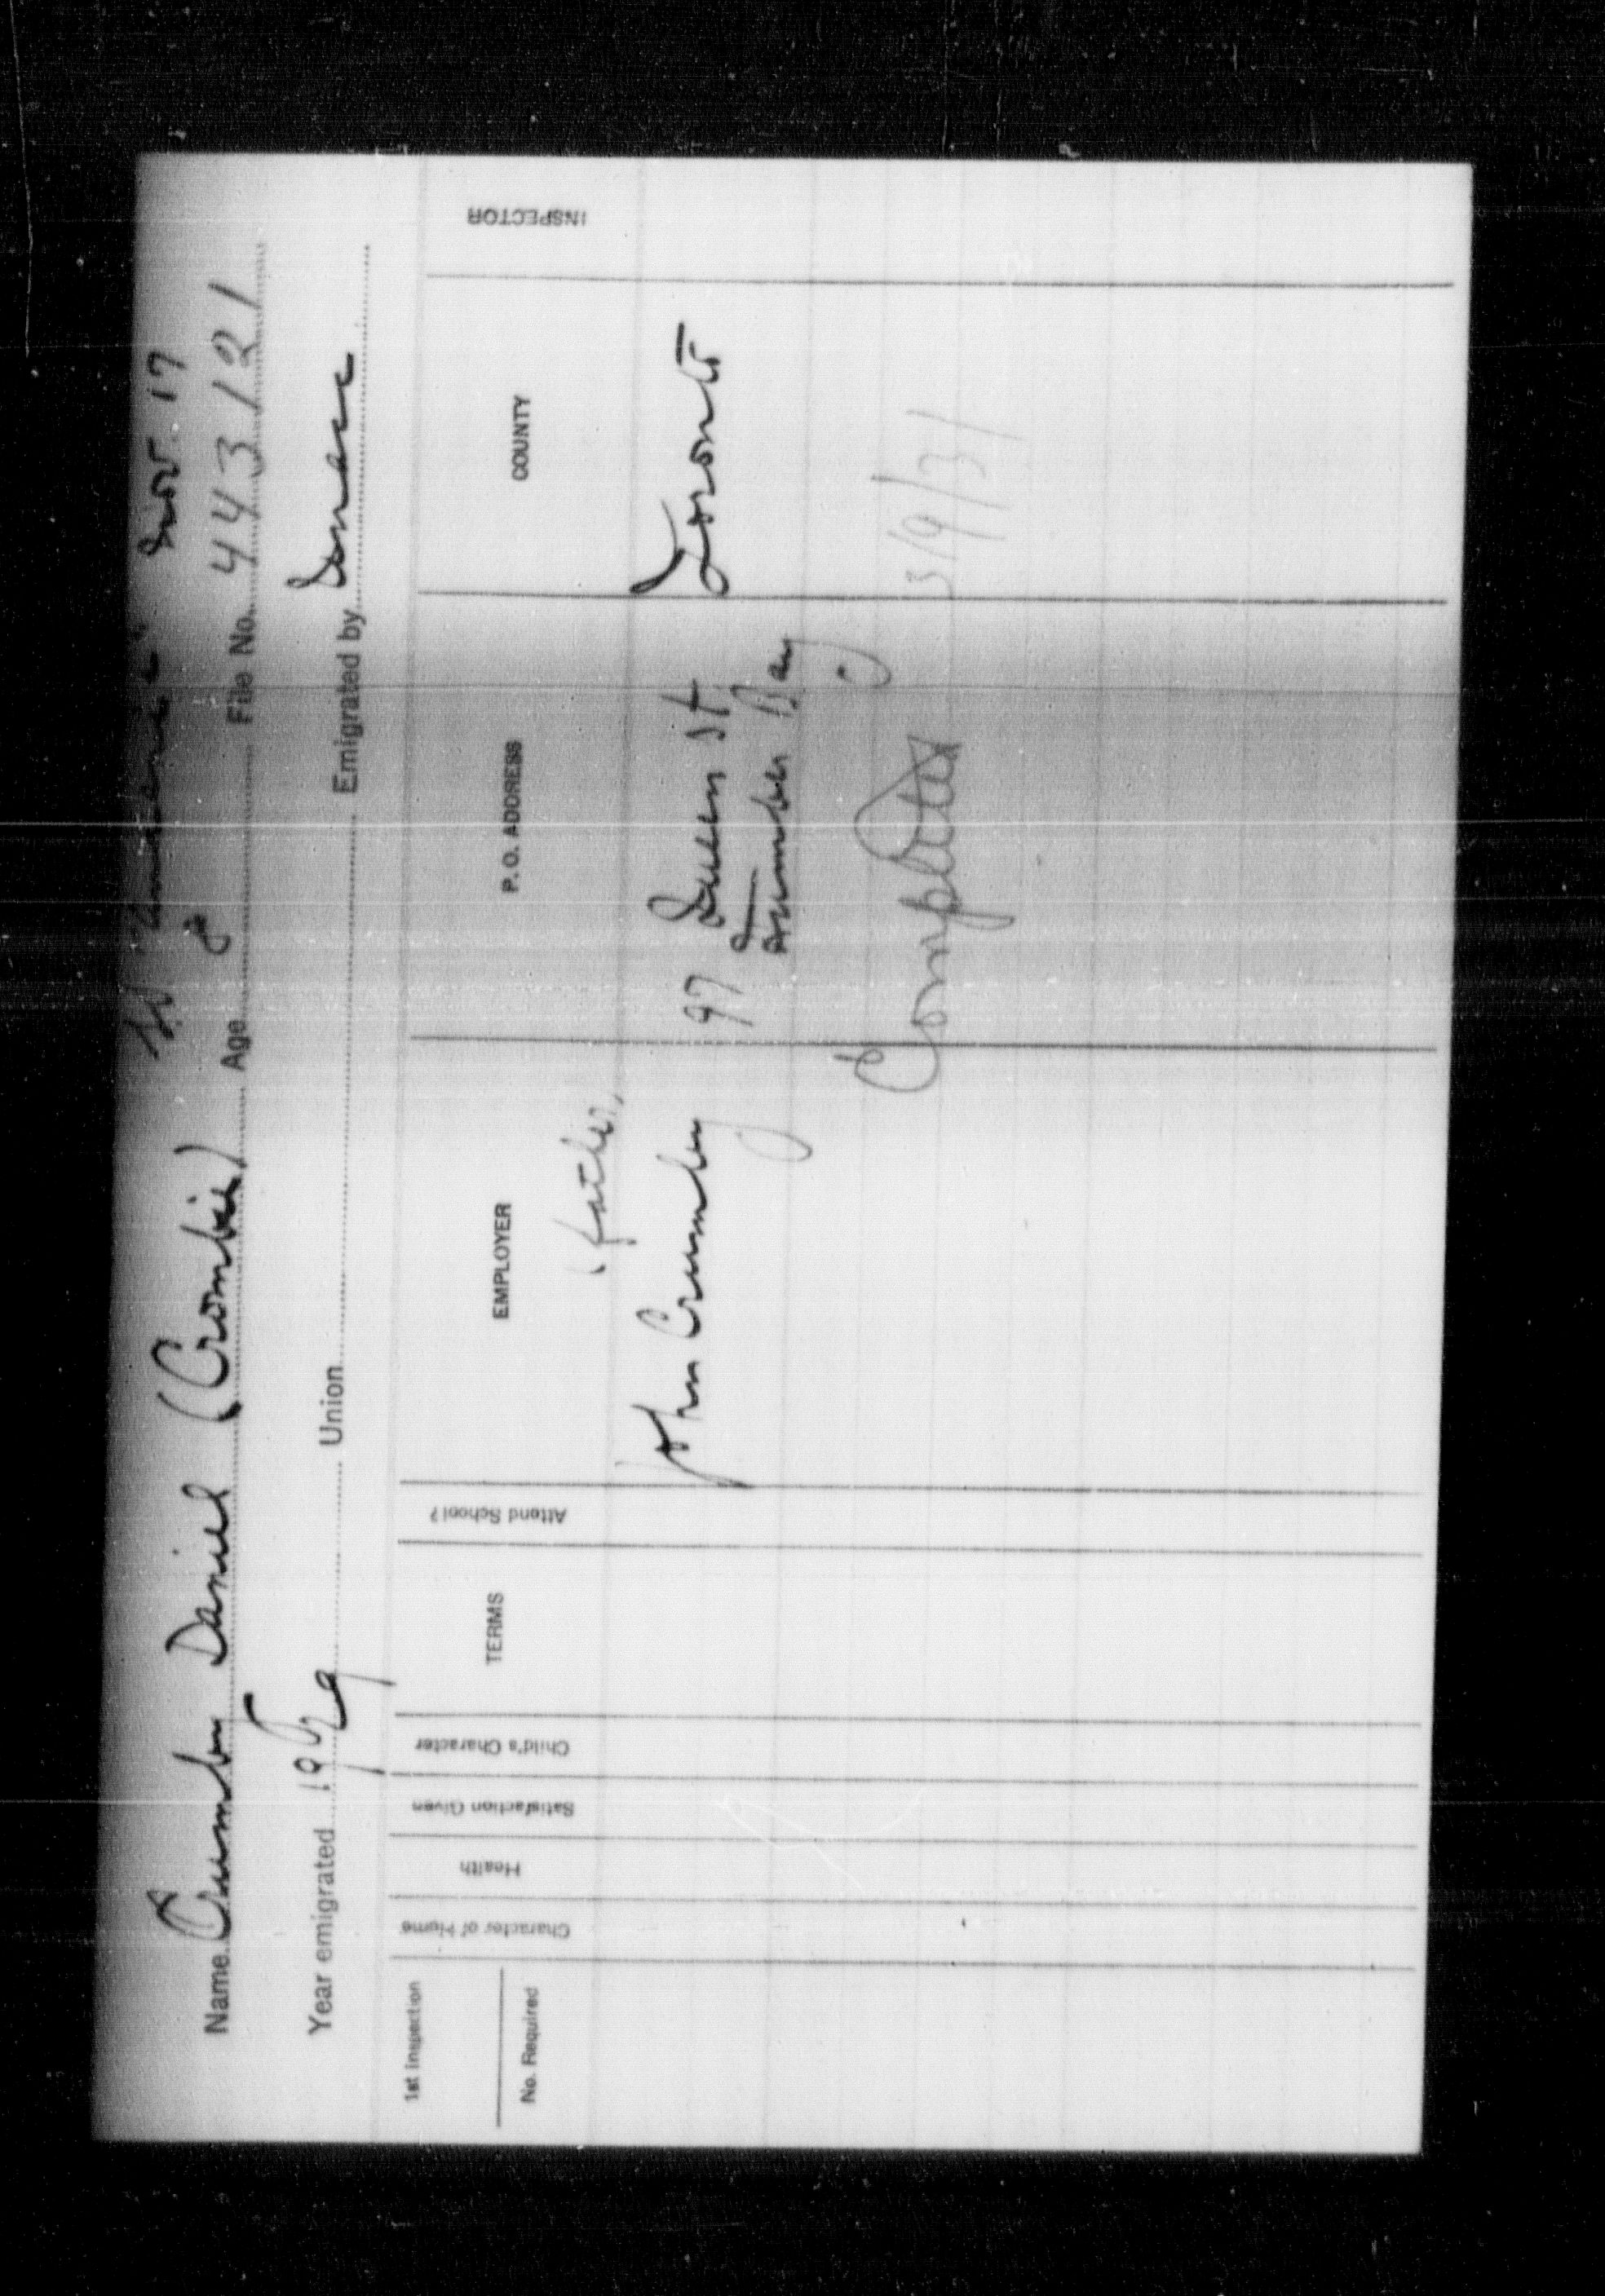 Nov. 17
Name Crumbey Daniel (Crombie) Age 8 File No. 443121
Year emigrated 1929 Union Emigrated by
1st Inspection
No. Required
Character of Home
Health
Satisfaction Given
Child's Character
TERMS
Attend School?
EMPLOYER
P. O. ADDRESS
COUNTY
INSPECTOR
(father)
John Crumbey 97 Queen St Toronto
Humber Bay
Completed
3/9/31